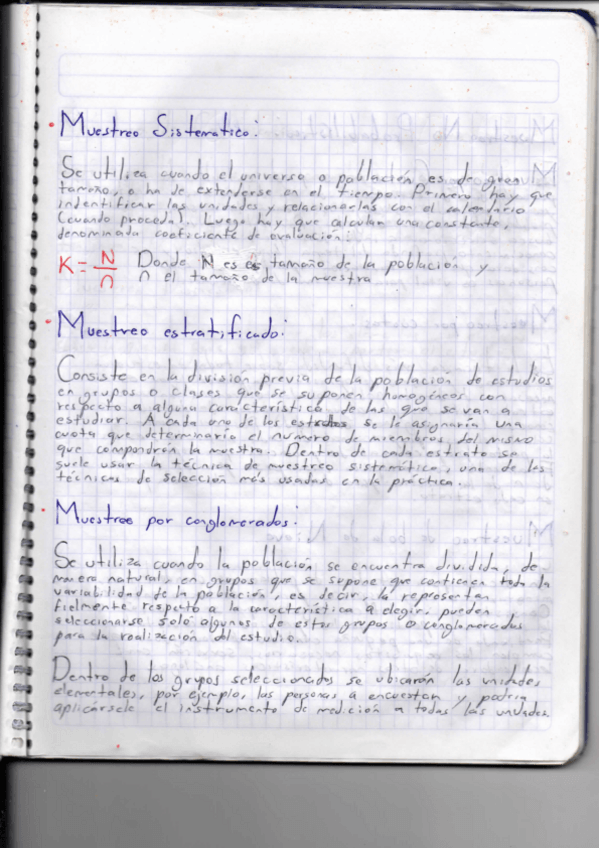 Muestreo Sistematico:
Se utiliza cuando el universo o población es de gran
tamaño, o ha de extenderse en el tiempo. Primero hay que
indentificar las unidades y relacionarlas con el calendario
(cuando proceda). Luego hay que calcular una constante,
denominada coeficiente de evaluación:
K = N/n Donde N es es tamaño de la población y
n el tamaño de la muestra
Muestreo estratificado:
Consiste en la división previa de la población de estudios
en grupos o clases que se suponen homogéneos con
respecto a alguna característica de las que se van a
estudiar. A cada uno de los estratos se le asignaría una
cuota que determinaría el numero de miembros del mismo
que compondrán la muestra. Dentro de cada estrato se
suele usar la técnica de muestreo sistemático, una de las
técnicas de selección más usadas en la práctica.
Muestreo por conglomerados:
Se utiliza cuando la población se encuentra dividida, de
manera natural, en grupos que se supone que contienen toda la
variabilidad de la población, es decir, la representan
fielmente respecto a la característica a elegir, pueden
seleccionarse solo algunos de estos grupos o conglomerados
para la realización del estudio.
Dentro de los grupos seleccionados se ubicarán las unidades
elementales, por ejemplo, las personas a encuestar y podría
aplicársele el instrumento de medición a todas las unidades.